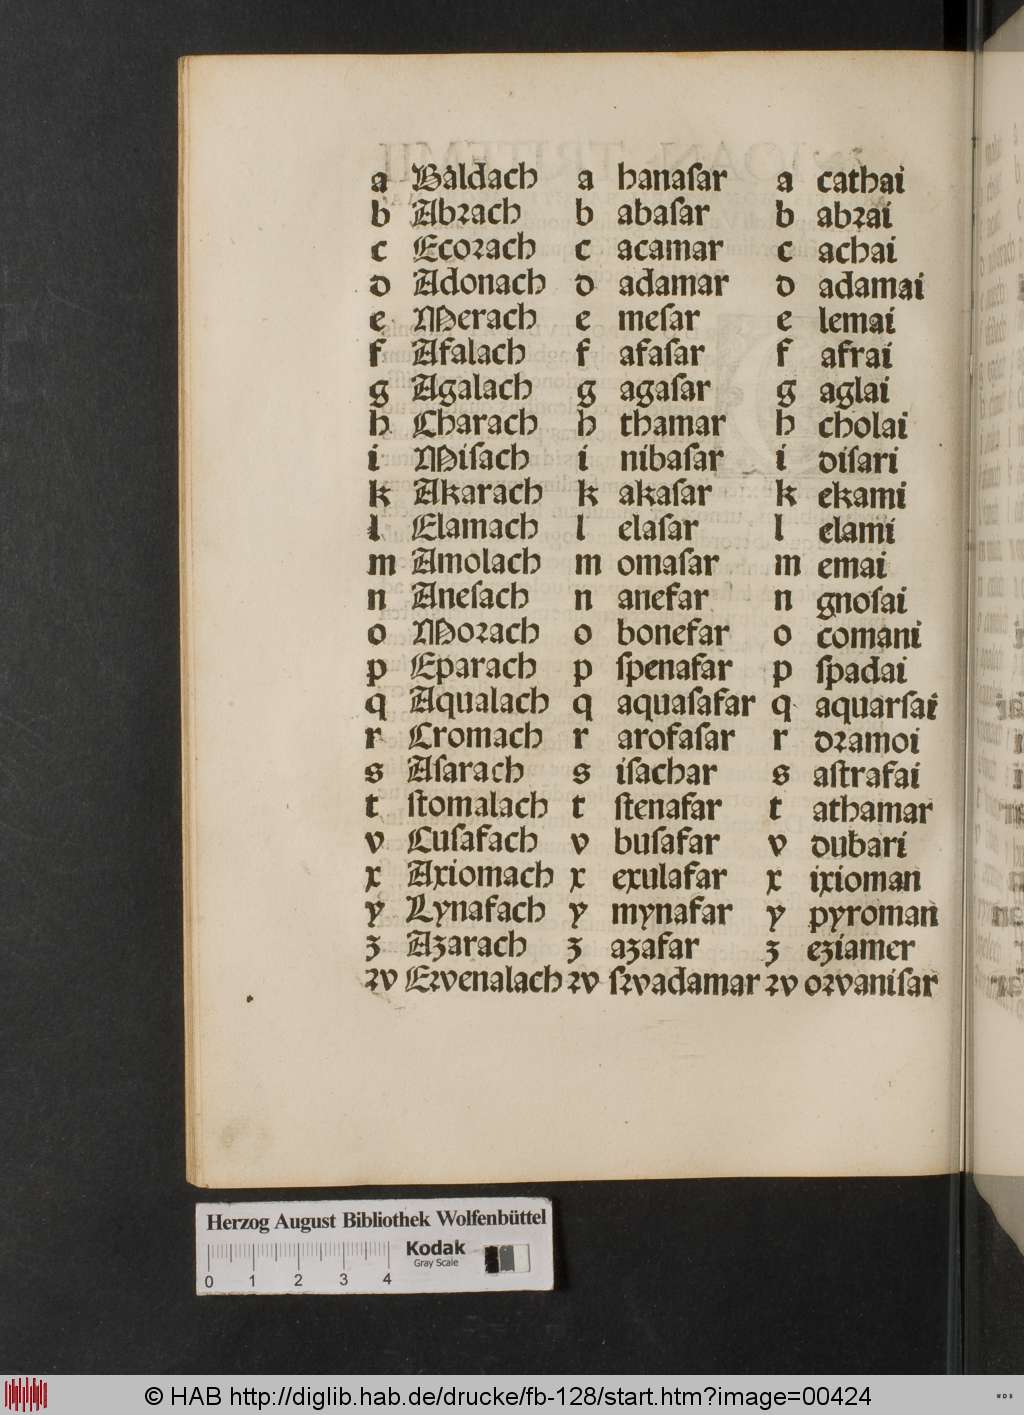 a Baldach a hanaſar a cathai
b Abꝛach b abaſar b abꝛai
c Ecoꝛach c acamar c achai
d Adonach d adamar d adamai
e Merach e meſar e lemai
f Afalach f afaſar f afrai
g Agalach g agaſar g aglai
h Charach h thamar h cholai
i Miſach i nibaſar i diſari
k Akarach k akaſar k ekami
l Elamach l elaſar l elami
m Amolach m omaſar m emai
n Aneſach n anefar n gnoſai
o Moꝛach o bonefar o comani
p Eparach p ſpenafar p ſpadai
q Aqualach q aquaſafar q aquarſai
r Cromach r arofaſar r dꝛamoi
s Aſarach s iſachar s aſtrafai
t ſtomalach t ſtenafar t athamar
v Cuſafach v buſafar v dubari
x Axiomach x exulafar x ixioman
y Lynafach y mynafar y pyroman
ʒ Aʒarach ʒ aʒafar ʒ eʒiamer
ꝛv Eꝛvenalach ꝛv ſꝛvadamar ꝛv oꝛvaniſar
Herzog August Bibliothek Wolfenbüttel
Kodak
Gray Scale
0 1 2 3 4
© HAB http://diglib.hab.de/drucke/fb-128/start.htm?image=00424
WDB